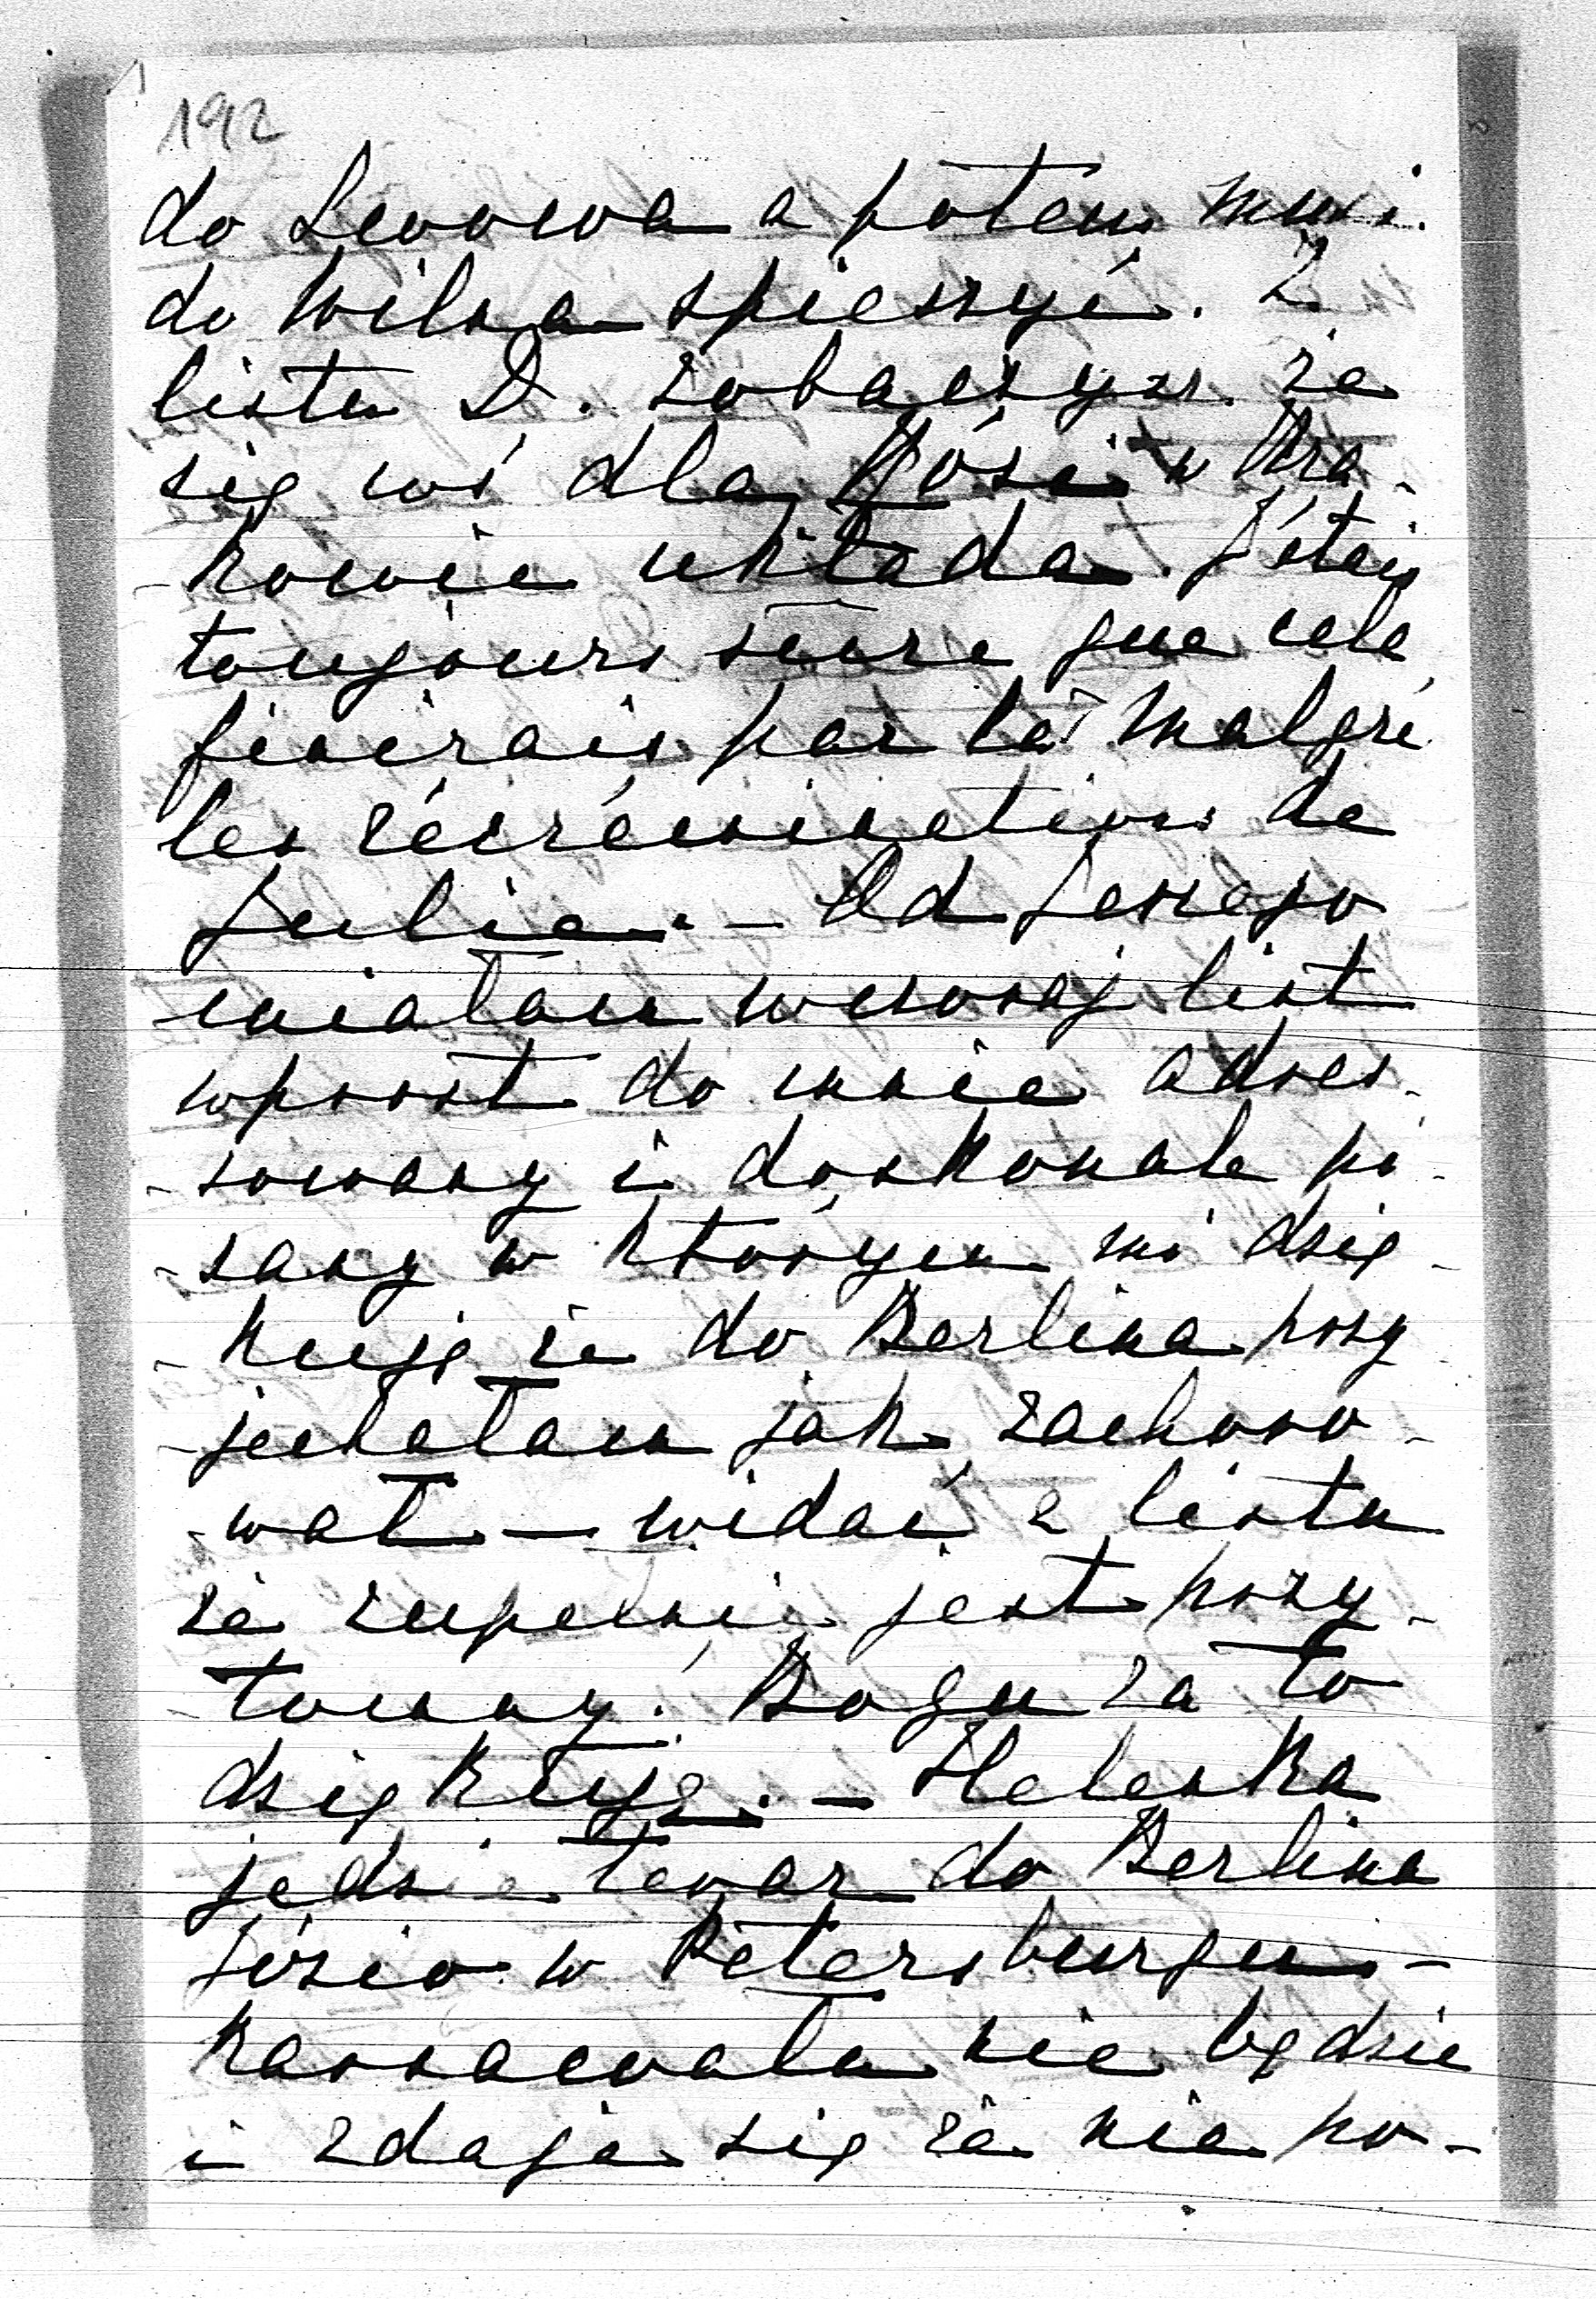 192
do Lwowa a potem musi
do Wilna spieszyć. Z
listu D. zobaczysz że
się coś dla Rósi w Kra-
-kowie układa. J'étais
toujours seure que cela
finirais par là malgré
les récréminations de
Julia. — Od Jerzego
miałam wczoraj list
wprost do mnie adres-
-sowany i doskonale pi-
-sany w którym mi dzię-
-kuje że do Berlina przy
-jechałam jak zachoro-
-wał — widać z listu
że zupełnie jest przy-
-tomny. Bogu za to
dzięki. — Helenka
jedzie teraz do Berlina
Józio w Petersburgu —
karnawału nie będzie
i zdaje się że nie po-